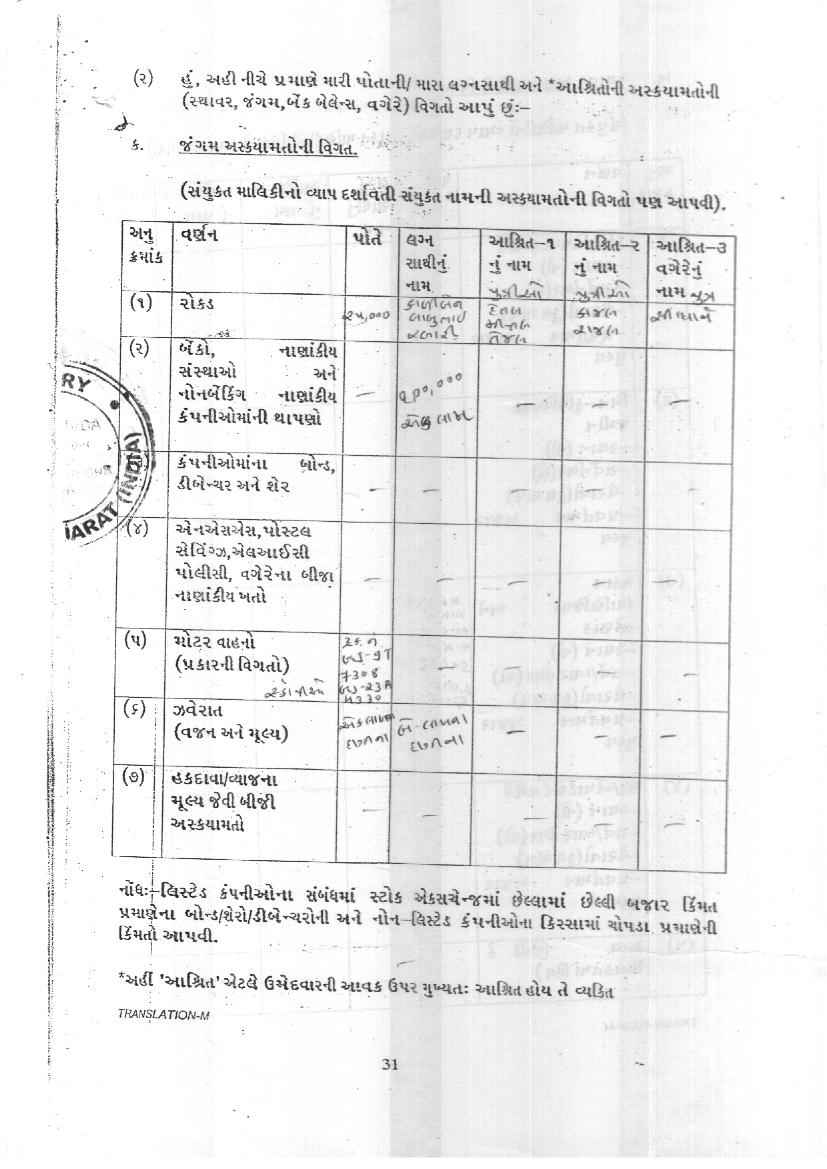 (૨) હું, અહીં નીચે પ્રમાણે મારી પોતાની/ મારા લગ્નસાથી અને *આશ્રિતોની અસ્કયામતોની
(સ્થાવર, જંગમ,બેંક બેલેન્સ, વગેરે) વિગતો આપું છું:–
ક. જંગમ અસ્કયામતોની વિગત.
(સંયુકત માલિકીનો વ્યાપ દર્શાવતી સંયુકત નામની અસ્કયામતોની વિગતો પણ આપવી).
અનુ ક્રમાંક
વર્ણન
પોતે
લગ્ન
સાથીનું
નામ
આશ્રિત–૧
નું નામ
પુત્રીઓ
આશ્રિત–૨
નું નામ
પુત્રીઓ
આશ્રિત–૩
વગેરેનું
નામ પુત્ર
(૧) રોકડ
૨૫,૦૦૦
હેતલ
મીનલ
તેજલ
કાજલ
રાજલ
(૨) બેંકો, નાણાંકીય
સંસ્થાઓ અને
નોનબેંકિંગ નાણાંકીય
કંપનીઓમાંની થાપણો
—
— — —
કંપનીઓમાંના બોન્ડ,
ડીબેન્ચર અને શેર
— — — — —
(૪) એનએસએસ,પોસ્ટલ
સેવિંગ્ઝ,એલઆઈસી
પોલીસી, વગેરેના બીજા
નાણાંકીય ખતો
— — — — —
(૫) મોટર વાહનો
(પ્રકારની વિગતો)
7308
— — —
(૬) ઝવેરાત
(વજન અને મૂલ્ય)
— — —
(૭) હકદાવા/વ્યાજના
મૂલ્ય જેવી બીજી
અસ્કયામતો
— — — — —
RY
ARAT (INDIA)
નોંધઃ–લિસ્ટેડ કંપનીઓના સંબંધમાં સ્ટોક એકસચેન્જમાં છેલ્લામાં છેલ્લી બજાર કિંમત
પ્રમાણેના બોન્ડ/શેરો/ડીબેન્ચરોની અને નોન–લિસ્ટેડ કંપનીઓના કિસ્સામાં ચોપડા પ્રમાણેની
કિંમતો આપવી.
*અહીં 'આશ્રિત' એટલે ઉમેદવારની આવક ઉપર મુખ્યતઃ આશ્રિત હોય તે વ્યકિત
TRANSLATION-M
31